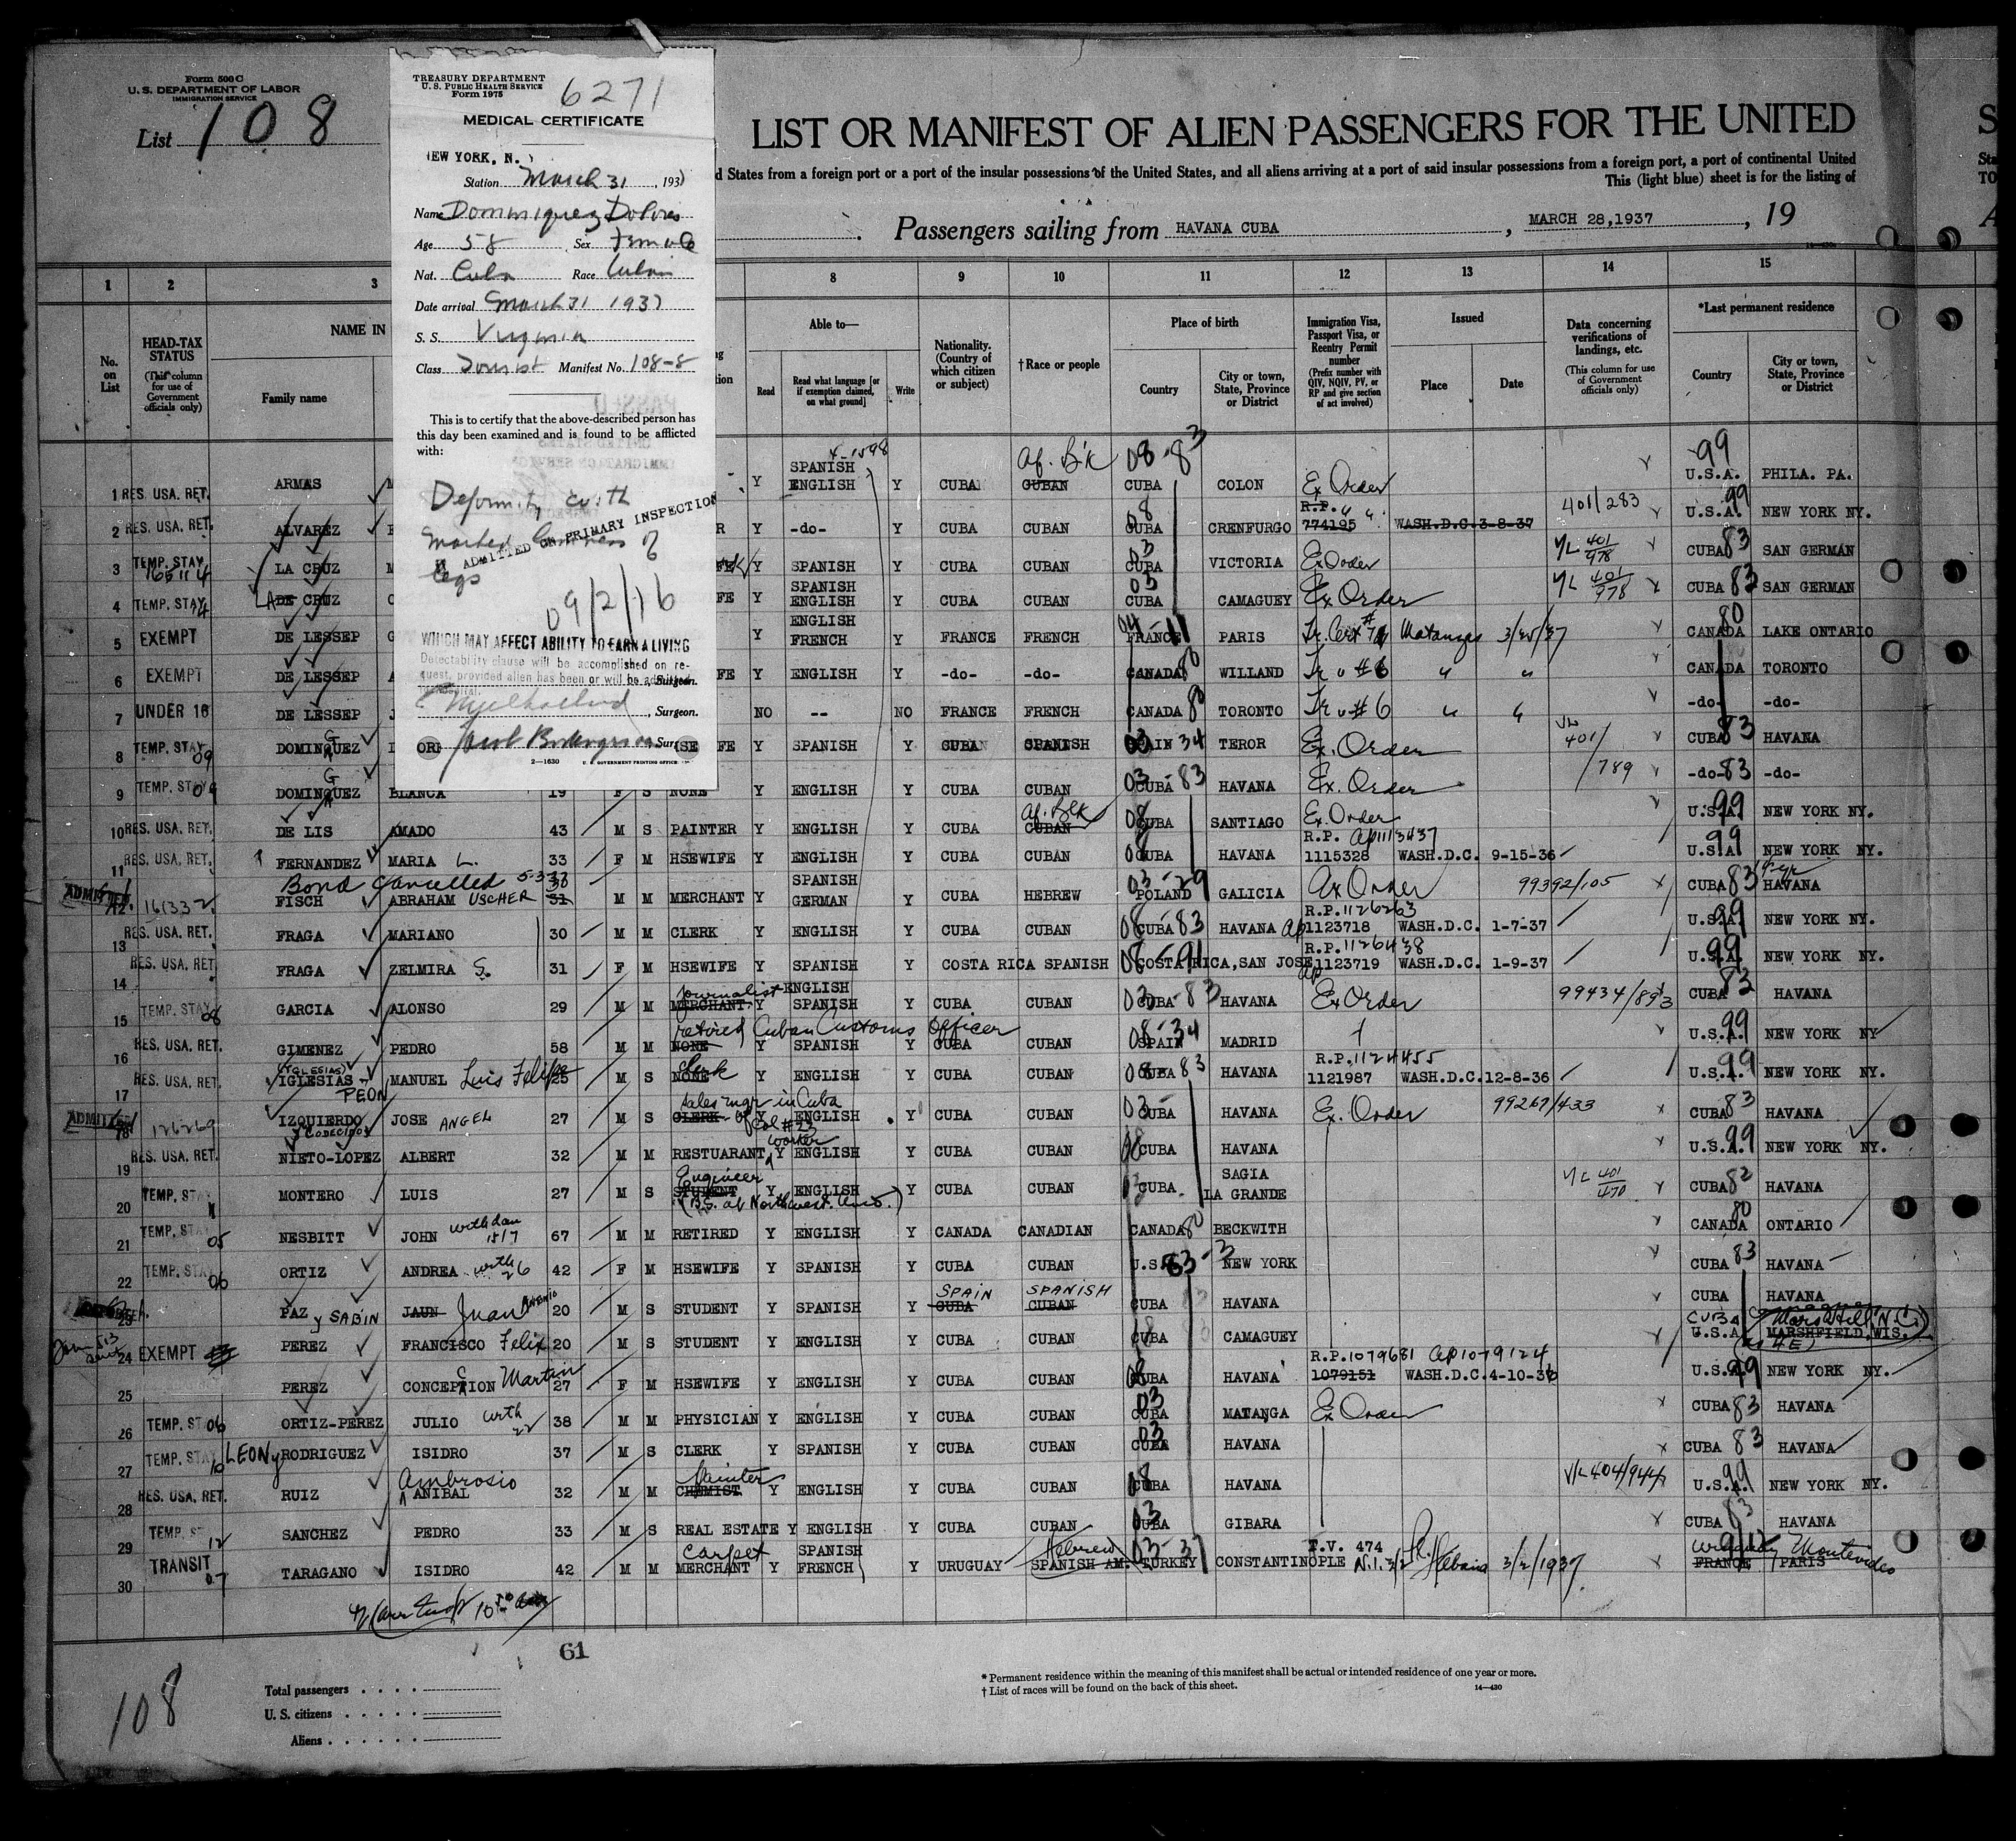 Form 500 C
U. S. DEPARTMENT OF LABOR
IMMIGRATION SERVICE
List 108
TREASURY DEPARTMENT
U. S. PUBLIC HEALTH SERVICE
Form 1975
6271
MEDICAL CERTIFICATE
NEW YORK, N.
Station March 31, 1937
Name Dominquez Dolores
Age 58 Sex Female
Nat. Cuba Race Cuban
Date arrival March 31 1937
S. S. Virginia
Class Tourist Manifest No. 108-8
This is to certify that the above-described person has
this day been examined and is found to be afflicted
with:
Deformity with
marked lameness of
legs
ADMITTED ON PRIMARY INSPECTION
09/2/16
WHICH MAY AFFECT ABILITY TO EARN A LIVING
Detectability clause will be accomplished on re-
quest, provided alien has been or will be admitted
, Surgeon.
, Surgeon.
2—1630 U. S. GOVERNMENT PRINTING OFFICE
LIST OR MANIFEST OF ALIEN PASSENGERS FOR THE UNITED
d States from a foreign port or a port of the insular possessions of the United States, and all aliens arriving at a port of said insular possessions from a foreign port, a port of continental United
This (light blue) sheet is for the listing of
Passengers sailing from HAVANA CUBA, MARCH 28,1937, 19
1 2 3 8 9 10 11 12 13 14 15
No. on List
HEAD-TAX STATUS
(This column for use of Government officials only)
NAME IN
Family name
Able to—
Read
Read what language [or if exemption claimed, on what ground]
Write
Nationality. (Country of which citizen or subject)
†Race or people
Place of birth
Country
City or town, State, Province or District
Immigration Visa, Passport Visa, or Reentry Permit number
(Prefix number with QIV, NQIV, PV, or RP and give section of act involved)
Issued
Place
Date
Data concerning verifications of landings, etc.
(This column for use of Government officials only)
*Last permanent residence
Country
City or town, State, Province or District
4-1598 Af. Blk 08-83 99
1 RES. USA. RET. ARMAS Y SPANISH ENGLISH Y CUBA CUBAN CUBA COLON Ex Order U.S.A. PHILA. PA.
2 RES. USA. RET. ALVAREZ R Y -do- Y CUBA CUBAN CUBA CRENFURGO R.P. 774195 WASH.D.C. 3-8-37 401/283 U.S.A. 99 NEW YORK NY.
3 TEMP. STAY 165114 LA CRUZ Y SPANISH Y CUBA CUBAN 03 CUBA VICTORIA Ex Order V/L 401/978 CUBA 83 SAN GERMAN
4 TEMP. STAY LA DE CRUZ FE Y SPANISH ENGLISH Y CUBA CUBAN 03 CUBA CAMAGUEY Ex Order V/L 401/978 CUBA 83 SAN GERMAN
5 EXEMPT DE LESSEP Y ENGLISH FRENCH Y FRANCE FRENCH FRANCE 11 PARIS Tr. Cert # Matanzas 3/25/37 CANADA 80 LAKE ONTARIO
6 EXEMPT DE LESSEP FE Y ENGLISH Y -do- -do- CANADA 80 WILLAND Tr " #6 " " CANADA TORONTO
7 UNDER 16 DE LESSEP NO -- NO FRANCE FRENCH CANADA 80 TORONTO Tr " #6 " " -do- -do-
8 TEMP. STAY 09 DOMINGUEZ FE Y SPANISH Y CUBA SPANISH 34 TEROR Ex. Order V/L 401/789 CUBA 83 HAVANA
9 TEMP. STAY 09 DOMINGUEZ BLANCA 19 F S NONE Y ENGLISH Y CUBA CUBAN 03 CUBA-83 HAVANA Ex. Order -do- 83 -do-
10 RES. USA. RET. DE LIS AMADO 43 M S PAINTER Y ENGLISH Y CUBA CUBAN Af. Blk 08 CUBA SANTIAGO Ex Order U.S.A. 99 NEW YORK NY.
11 RES. USA. RET. FERNANDEZ MARIA L. 33 F M HSEWIFE Y ENGLISH Y CUBA CUBAN 08 CUBA HAVANA R.P. ap1113437 1115328 WASH.D.C. 9-15-36 U.S.A. 99 NEW YORK NY.
Bond Cancelled 5-3-37
ADMITTED 12 161332 FISCH ABRAHAM USCHER 31 M M MERCHANT Y SPANISH GERMAN Y CUBA HEBREW 03-29 POLAND GALICIA Ex Order 99392/105 CUBA 83 HAVANA
13 RES. USA. RET. FRAGA MARIANO 30 M M CLERK Y ENGLISH Y CUBA CUBAN 08 CUBA 83 HAVANA R.P. 1126263 ap 1123718 WASH.D.C. 1-7-37 U.S.A. 99 NEW YORK NY.
14 RES. USA. RET. FRAGA ZELMIRA S. 31 F M HSEWIFE Y SPANISH Y COSTA RICA SPANISH 08-91 COSTA RICA, SAN JOSE R.P. 1126438 ap 1123719 WASH.D.C. 1-9-37 U.S.A. 99 NEW YORK NY.
15 TEMP. STAY 08 GARCIA ALONSO 29 M M journalist MERCHANT Y ENGLISH SPANISH Y CUBA CUBAN 03 CUBA-83 HAVANA Ex Order 99434/893 CUBA 83 HAVANA
16 RES. USA. RET. GIMENEZ PEDRO 58 M M retired Cuban Customs Officer NONE Y SPANISH Y CUBA CUBAN 08-34 SPAIN MADRID U.S.A. 99 NEW YORK NY
17 RES. USA. RET. (YGLESIAS) IGLESIAS - PEON MANUEL Luis Felipe 25 M S Clerk NONE Y ENGLISH Y CUBA CUBAN 08 83 HAVANA R.P. 1124455 1121987 WASH.D.C. 12-8-36 U.S.A. 99 NEW YORK NY.
ADMITTED 18 126269 IZQUIERDO y CODECIDO JOSE ANGEL 27 M S sales mgr in Cuba CLERK of Col #23 Y ENGLISH Y CUBA CUBAN 03 CUBA HAVANA Ex. Order 99267/433 CUBA 83 HAVANA
19 RES. USA. RET. NIETO-LOPEZ ALBERT 32 M M RESTUARANT worker Y ENGLISH Y CUBA CUBAN 08 CUBA HAVANA U.S.A. 99 NEW YORK NY.
20 TEMP. STAY MONTERO LUIS 27 M S Engineer STUDENT Y ENGLISH (B.S. at Northwest. Univ.) Y CUBA CUBAN 03 CUBA SAGIA LA GRANDE V/L 401/470 CUBA 82 HAVANA
21 TEMP. STAY 05 NESBITT JOHN with dau 15/7 67 M M RETIRED Y ENGLISH Y CANADA CANADIAN CANADA 80 BECKWITH CANADA 80 ONTARIO
22 TEMP. STAY 06 ORTIZ ANDREA with 26 42 F M HSEWIFE Y SPANISH Y CUBA CUBAN U.S. 83-3 NEW YORK CUBA 83 HAVANA
23 PAZ y SABIN JAUN Juan Antonio 20 M S STUDENT Y SPANISH Y SPAIN CUBA SPANISH CUBAN CUBA HAVANA CUBA HAVANA
24 EXEMPT PEREZ FRANCISCO Felix 20 M S STUDENT Y ENGLISH Y CUBA CUBAN CUBA CAMAGUEY CUBA U.S.A. Mars Hill N.C. MARSHFIELD, WIS. (as 4E)
25 PEREZ CONCEPCION Martin 27 F M HSEWIFE Y ENGLISH Y CUBA CUBAN 08 CUBA HAVANA R.P. 1079681 ap1079124 1079151 WASH.D.C. 4-10-36 U.S.A. 99 NEW YORK NY.
26 TEMP. ST 06 ORTIZ-PEREZ JULIO with 22 38 M M PHYSICIAN Y ENGLISH Y CUBA CUBAN 03 CUBA MATANGA Ex Order CUBA 83 HAVANA
27 TEMP. STAY 10 LEON y RODRIGUEZ ISIDRO 37 M S CLERK Y SPANISH Y CUBA CUBAN 03 CUBA HAVANA CUBA 83 HAVANA
28 RES. USA. RET. RUIZ Ambrosio ANIBAL 32 M M Painter CHEMIST Y ENGLISH Y CUBA CUBAN 08 CUBA HAVANA V/L 404/944 U.S.A. 99 NEW YORK NY.
29 TEMP. ST 12 SANCHEZ PEDRO 33 M S REAL ESTATE Y ENGLISH Y CUBA CUBAN 03 CUBA GIBARA CUBA 83 HAVANA
30 TRANSIT 07 TARAGANO ISIDRO 42 M M carpet MERCHANT Y SPANISH FRENCH Y URUGUAY Hebrew SPANISH AM. 03-37 TURKEY CONSTANTINOPLE T.V. 474 Habana 3/2/1937 Uruguay FRANCE Montevideo PARIS
61
108
Total passengers
U. S. citizens
Aliens
* Permanent residence within the meaning of this manifest shall be actual or intended residence of one year or more.
† List of races will be found on the back of this sheet.
14—430